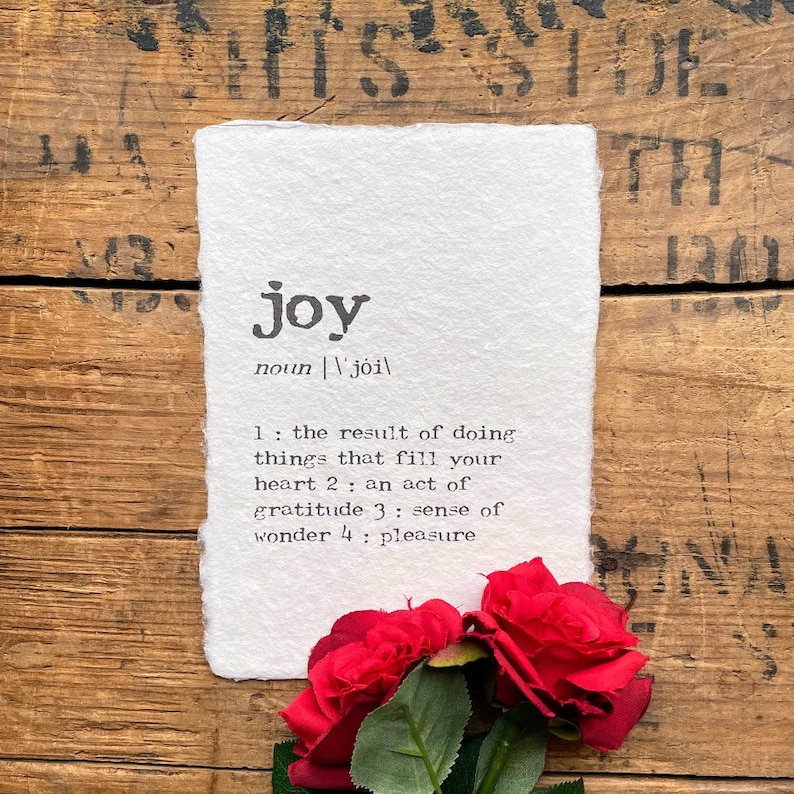 THIS SIDE
joy
noun | \ˈjȯi\
1 : the result of doing
things that fill your
heart 2 : an act of
gratitude 3 : sense of
wonder 4 : pleasure